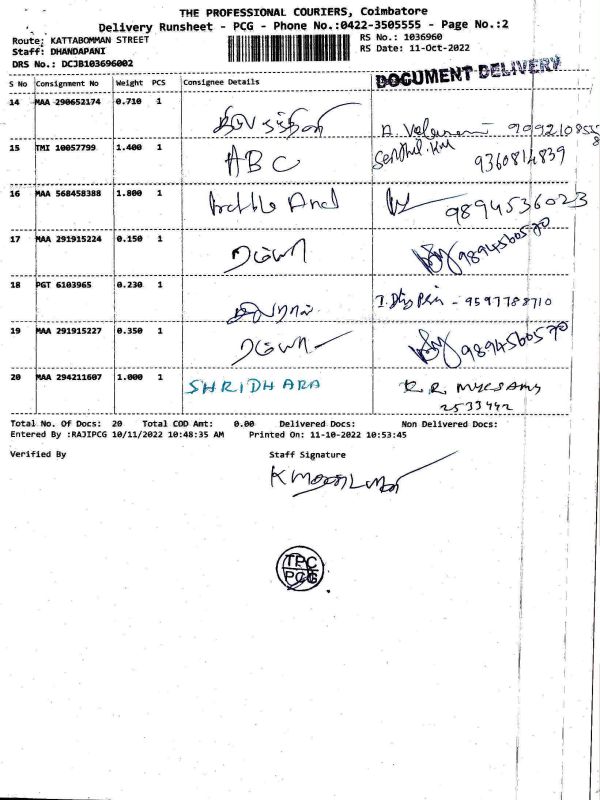 THE PROFESSIONAL COURIERS, Coimbatore
Delivery Runsheet - PCG - Phone No.:0422-3505555 - Page No.:2
Route: KATTABOMMAN STREET
RS No.: 1036960
Staff: DHANDAPANI
RS Date: 11-Oct-2022
DRS No.: DCJB103696002
DOCUMENT DELIVERY
S No Consignment No Weight PCS Consignee Details
14 MAA 290652174 0.710 1
15 TMI 10057799 1.400 1 ABC Senthil.KM 9360814839
16 MAA 568458388 1.800 1 9894536023
17 MAA 291915224 0.150 1 ரம்யா 9894560570
18 PGT 6103965 0.230 1 சிவராம் - 9597788710
19 MAA 291915227 0.350 1 ரம்யா 9894560570
20 MAA 294211607 1.000 1 SHRIDHARA
2533442
Total No. Of Docs: 20 Total COD Amt: 0.00 Delivered Docs: Non Delivered Docs:
Entered By :RAJIPCG 10/11/2022 10:48:35 AM Printed On: 11-10-2022 10:53:45
Verified By Staff Signature
TPC
PCG